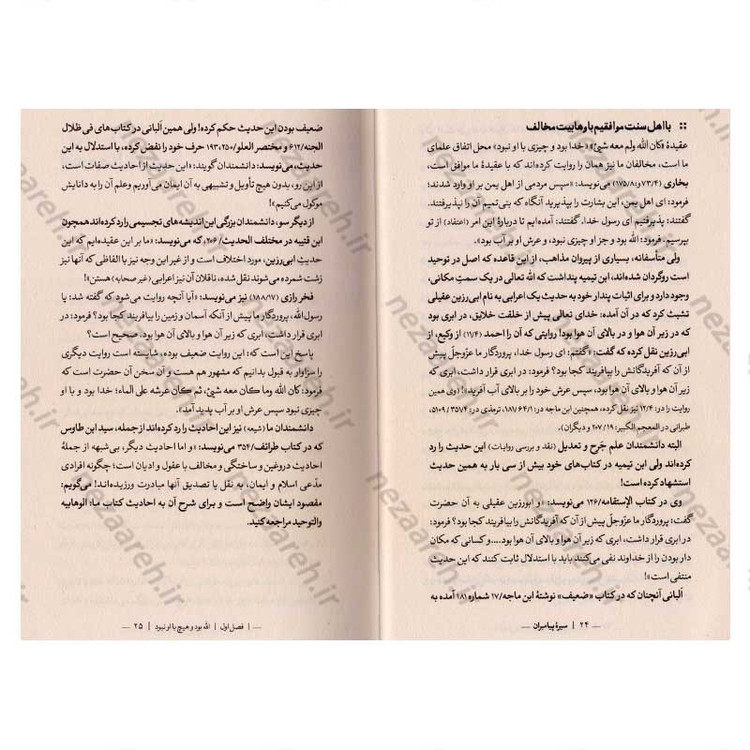 :: با اهل سنت موافقیم با وهابیت مخالف
عقیدهٔ «کان الله ولم معه شئ» «خدا بود و چیزی با او نبود» محل اتفاق علمای
ما است، مخالفان ما نیز همان را روایت کرده‌اند که با عقیدهٔ ما موافق است،
بخاری (۷۳/۴و۱۷۵/۸) می‌نویسد: «سپس مردمی از اهل یمن بر او وارد شدند؛
فرمود: ای اهل یمن، این بشارت را بپذیرید آنگاه که بنی‌تمیم آن را نپذیرفتند.
گفتند: پذیرفتیم ای رسول خدا، گفتند: آمده‌ایم تا دربارهٔ این امر (اعتقاد) از تو
بپرسیم. فرمود: الله بود و جز او چیزی نبود، و عرش او بر آب بود).
ولی متأسفانه، بسیاری از پیروان مذاهب، از این قاعده که اصل در توحید
است روگردان شده‌اند، ابن تیمیه پنداشت که الله تعالی در یک سمتِ مکانی،
وجود دارد و برای اثبات پندار خود به حدیث یک اعرابی به نام ابی‌رزین عقیلی
تثبث کرد که در آن آمده: خدای تعالی پیش از خلقت خلائق، در ابری بود
که در زیر آن هوا و در بالای آن هوا بود! روایتی که آن را احمد (۱۱/۴) از وکیع، از
ابی‌رزین نقل کرده که گفت: «گفتم: ای رسول خدا، پروردگار ما عزّوجلّ پیش
از آن که آفریدگانش را بیافریند کجا بود؟ فرمود: در ابری قرار داشت، ابری که
زیر آن هوا و بالای آن هوا بود، سپس عرش خود را بر بالای آب آفرید!» (وی همین
روایت را در: ۱۲/۴ نیز نقل کرده، همچنین ابن ماجه در: ۶۴/۱/۱۸۱، ترمذی در: ۳۵۷۴ / ۵۱۰۹،
طبرانی در المعجم الکبیر: ۱۹ / ۲۰۷ و دیگران).
البته دانشمندان علم جَرح و تعدیل (نقد و بررسی روایات) این حدیث را رد
کرده‌اند ولی ابن تیمیه در کتاب‌های خود بیش از سی بار به همین حدیث
استشهاد کرده است!
وی در کتاب الإستقامه/۱۲۶ می‌نویسد: «و ابورزین عقیلی به آن حضرت
گفت: پروردگار ما عزّوجلّ پیش از آن که آفریدگانش را بیافریند کجا بود؟ فرمود:
در ابری قرار داشت، ابری که زیر آن هوا و بالای آن هوا بود.... و کسانی که مکان
داشتن را از خداوند نفی می‌کنند باید با استدلال ثابت کنند که این حدیث
منتفی است»!
آلبانی آنچنان که در کتاب «ضعیف» نوشتهٔ ابن ماجه/۱۷ شماره ۱۸۱ آمده به
۲۴ | سیرهٔ پیامبران
ضعیف بودن این حدیث حکم کرده! ولی همین آلبانی در کتاب‌های فی ظلال
الجنه/۶۱۲ و مختصر العلو/۲۵۰،۱۹۳ حرف خود را نقض کرده، با استدلال به این
حدیث، می‌نویسد: «دانشمندان گویند: «این حدیث از احادیث صفات است،
از این رو، بدون هیچ تأویل و تشبیهی به آن ایمان می‌آوریم وعلم آن را به دانایش
موکول می‌کنیم»!
از دیگر سو، دانشمندان بزرگی این اندیشه‌های تجسیمی را رد کرده‌اند همچون
ابن قتیبه در مختلف الحدیث/۲۰۶، که می‌نویسد: «ما بر این عقیده‌ایم که این
حدیثِ ابی‌رزین، مورد اختلاف است و از غیر این وجه نیز با الفاظی که آنها نیز
زشت شمرده می‌شوند نقل شده، ناقلان آن نیز اعرابی (غیر صحابه) هستن»!
فخر رازی (۱۸۸/۱۷) نیز می‌نویسد: «آیا آنچه روایت می‌شود که گفته شد: یا
رسول الله، پروردگار ما پیش از آنکه آسمان و زمین را بیافریند کجا بود؟ فرمود: در
ابری قرار داشت، ابری که زیر آن هوا و بالای آن هوا بود. صحیح است؟
پاسخ این است که: این روایت ضعیف بوده، شایسته است روایت دیگری
را سزاوار به قبول بدانیم که مشهور هم هست و آن سخن آن حضرت است که
فرمود: کان الله وما کان معه شئ، ثم کان عرشه علی الماء؛ خدا بود و با او
چیزی نبود سپس عرش او بر آب پدید آمد).
دانشمندان ما (شیعه) نیز این احادیث را رد کرده‌اند از جمله، سید ابن طاوس
که در کتاب طرائف/۳۵۴ می‌نویسد: «و اما احادیث دیگر، بی‌شبهه از جملهٔ
احادیث دروغین و ساختگی و مخالف با عقول و ادیان است؛ چگونه افرادی
مدّعی اسلام و ایمان، به نقل یا تصدیق آنها مبادرت ورزیده‌اند!» می‌گویم:
مقصود ایشان واضح است و برای شرح آن به احادیث کتاب ما: الوهابیه
والتوحید مراجعه کنید.
فصل اول | الله بود و هیچ با او نبود | ۲۵
nezaareh.ir